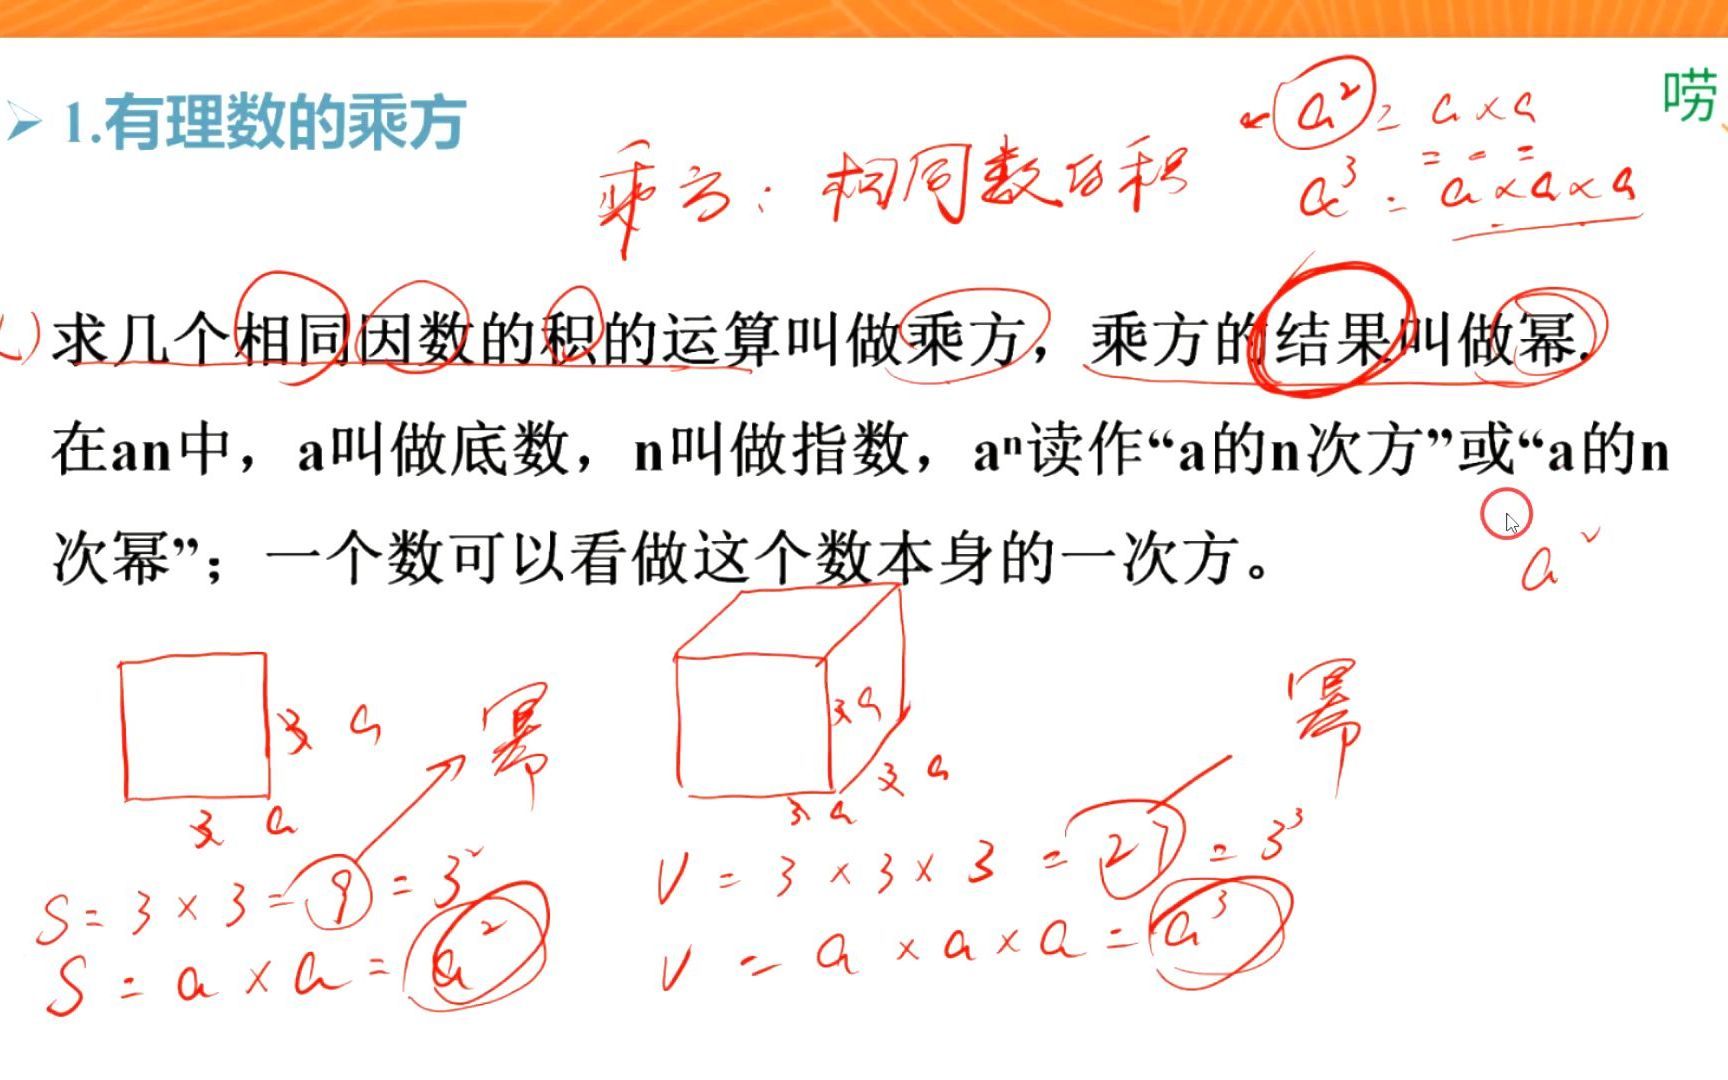 唠
1.有理数的乘方
a²=a×a
乘方：相同数的积
a³=a×a×a
求几个相同因数的积的运算叫做乘方，乘方的结果叫做幂.
在an中，a叫做底数，n叫做指数，aⁿ读作“a的n次方”或“a的n
次幂”；一个数可以看做这个数本身的一次方。
a
3 a
幂
3 a
3 a
幂
3 a
3 a
S=3×3=9=3²
V=3×3×3=27=3³
S=a×a=a²
V=a×a×a=a³